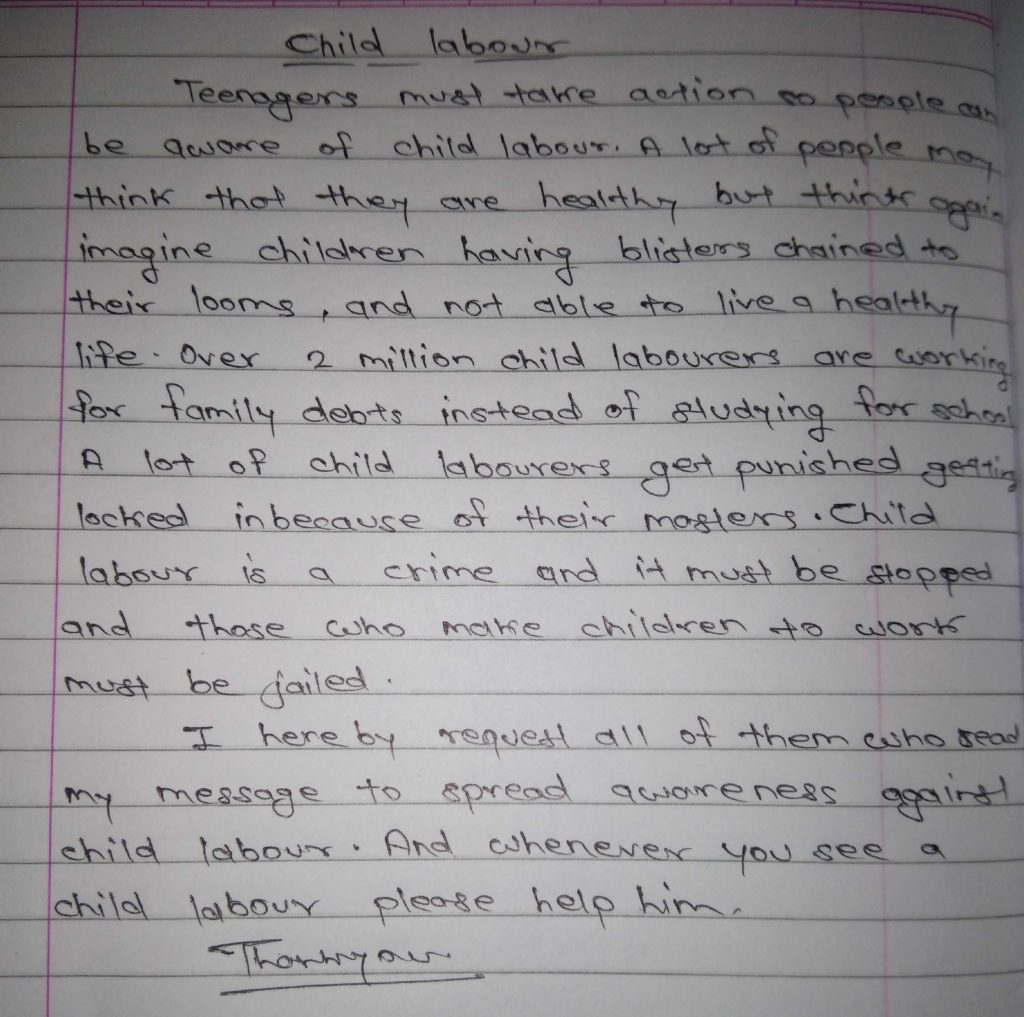 Child labour
Teenagers must take action so people can
be aware of child labour. A lot of people may
think that they are healthy but think again
imagine children having blisters chained to
their looms, and not able to live a healthy
life. Over 2 million child labourers are working
for family debts instead of studying for school
A lot of child labourers get punished getting
locked in because of their masters. Child
labour is a crime and it must be stopped
and those who make children to work
must be jailed.
I here by request all of them who read
my message to spread awareness against
child labour. And whenever you see a
child labour please help him.
Thankyou